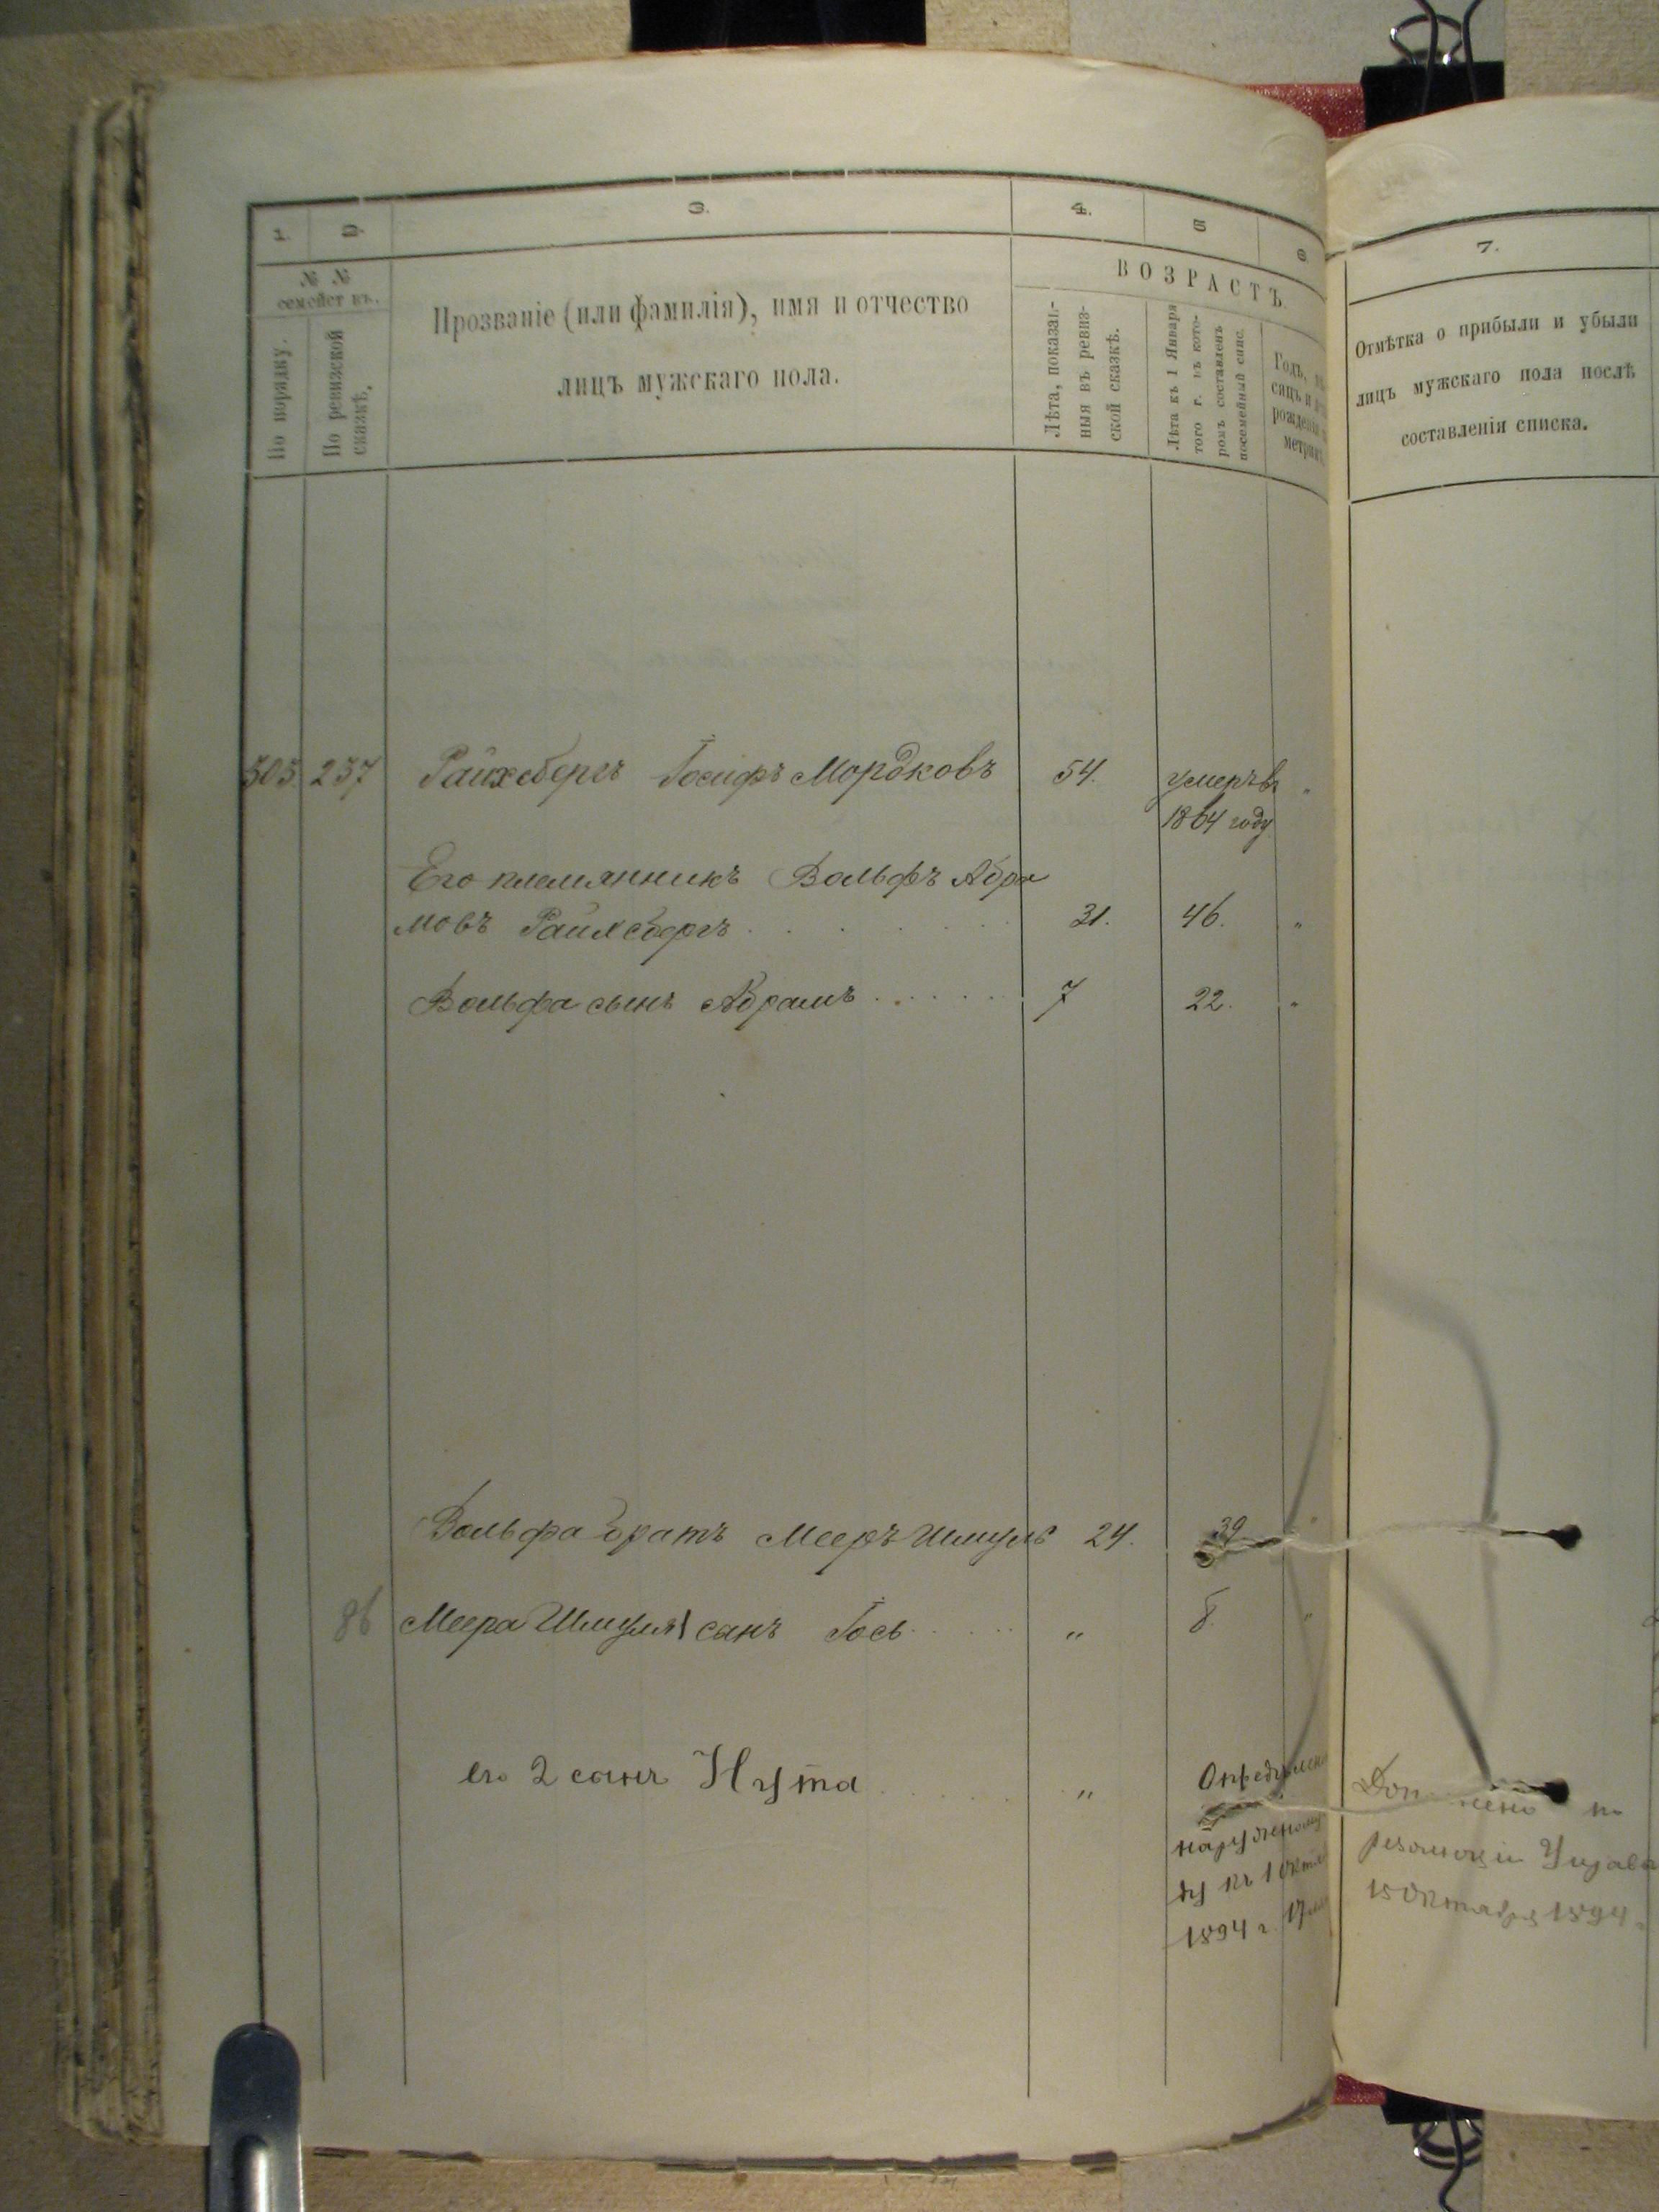 1. 2. 3. 4. 5 6. 7.
№ №
семействъ.
По порядку.
По ревизской
сказкѣ.
Прозваніе (или фамилія), имя и отчество
лицъ мужскаго пола.
ВОЗРАСТЪ.
Лѣта, показан-
ныя въ ревиз-
ской сказкѣ.
Лѣта къ 1 Января
того г. въ кото-
ромъ составленъ
посемейный спис.
Годъ,
сяцъ и
рожденія
метрик
Отмѣтка о прибыли и убыли
лицъ мужскаго пола послѣ
составленія списка.
505 237 Райхсбергъ Іосифъ Мордковъ 54. умеръ въ "
1864 году
Его племянникъ Вольфъ Абра
мовъ Райхсбергъ 31. 46. "
Вольфа сынъ Абрамъ 7 22. "
Вольфа братъ Мееръ Шмуль 24. 39 "
86 Меера Шмуля сынъ Іось " 8. "
его 2 сынъ Нута " Опредѣлено
наружному
ду къ 1 Октя
1894 г. 17
по
резолюціи Управ
15 Октября 1894